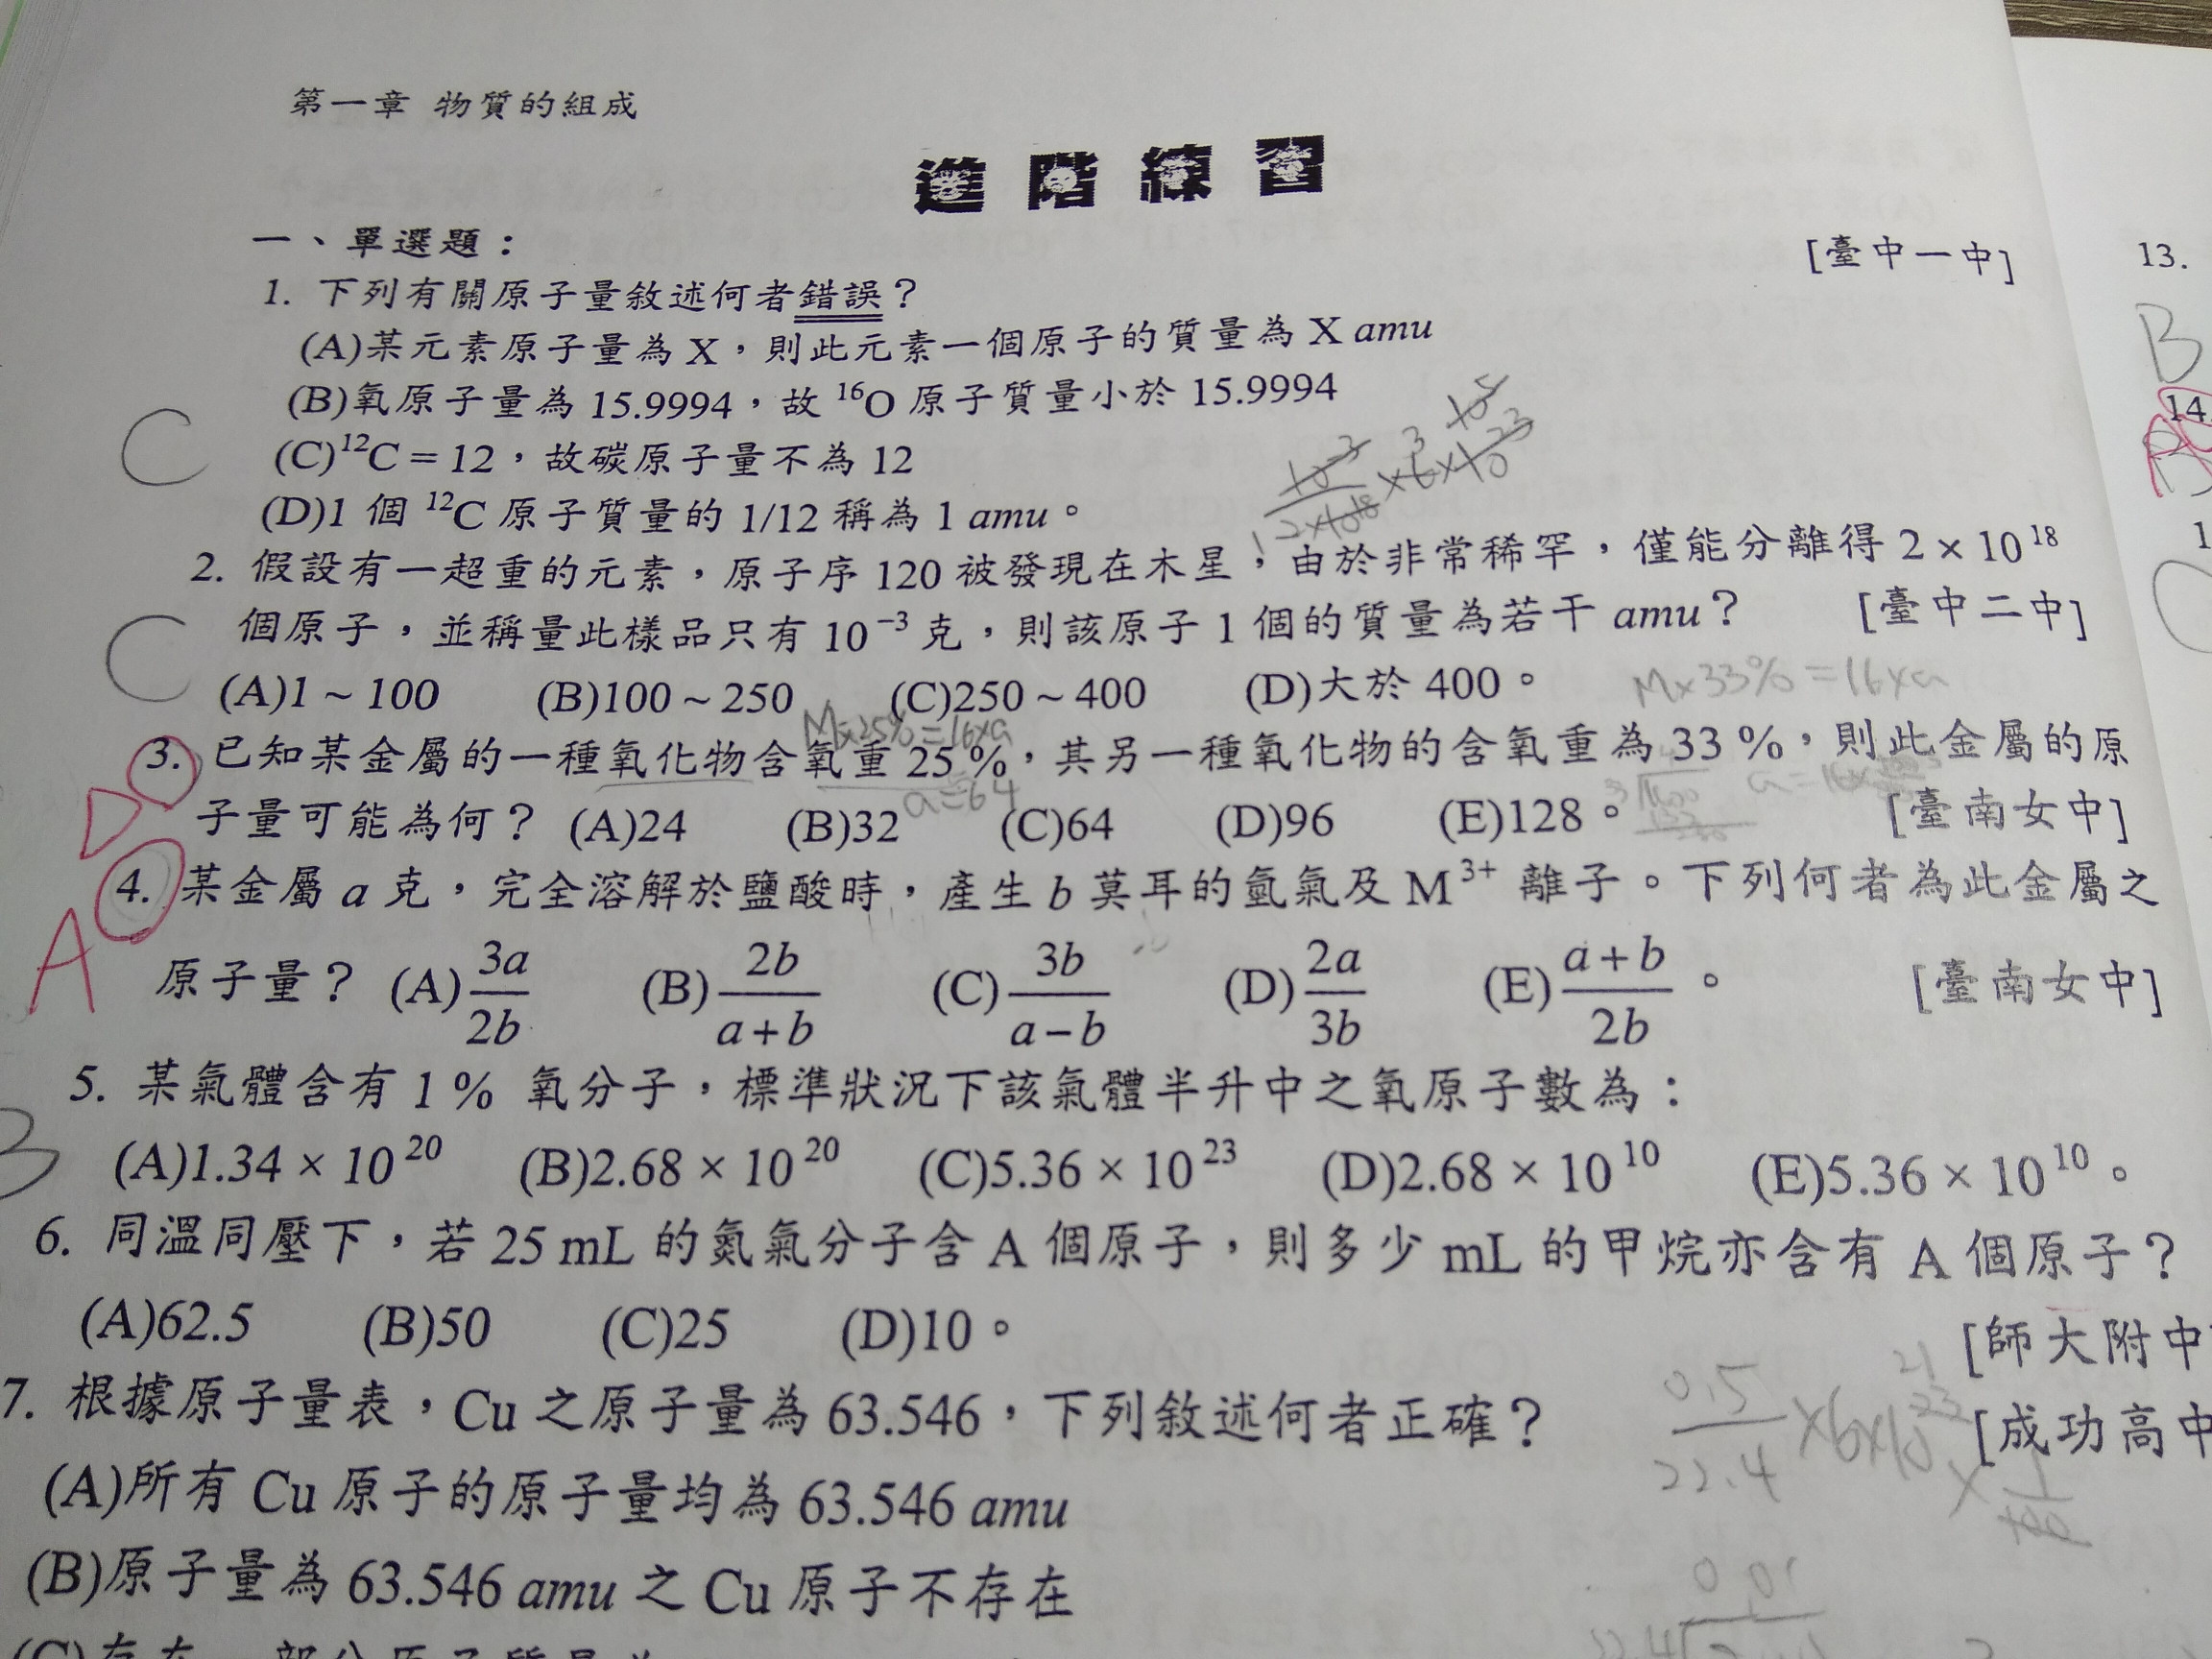 第一章 物質的組成
進階練習
一、單選題：
1. 下列有關原子量敘述何者錯誤？ [臺中一中]
(A)某元素原子量為 X，則此元素一個原子的質量為 X amu
(B)氧原子量為 15.9994，故 ¹⁶O 原子質量小於 15.9994
C
(C)¹²C = 12，故碳原子量不為 12
(D)1 個 ¹²C 原子質量的 1/12 稱為 1 amu。
2. 假設有一超重的元素，原子序 120 被發現在木星，由於非常稀罕，僅能分離得 2 × 10¹⁸
個原子，並稱量此樣品只有 10⁻³ 克，則該原子 1 個的質量為若干 amu？ [臺中二中]
C
(A)1 ~ 100 (B)100 ~ 250 (C)250 ~ 400 (D)大於 400。
M×33% = 16×a
M×25% = 16×a
3. 已知某金屬的一種氧化物含氧重 25 %，其另一種氧化物的含氧重為 33 %，則此金屬的原
a = 64
D
子量可能為何？ (A)24 (B)32 (C)64 (D)96 (E)128。 [臺南女中]
4. 某金屬 a 克，完全溶解於鹽酸時，產生 b 莫耳的氫氣及 M³⁺ 離子。下列何者為此金屬之
A
原子量？ (A) 3a/2b (B) 2b/a+b (C) 3b/a−b (D) 2a/3b (E) a+b/2b。 [臺南女中]
5. 某氣體含有 1 % 氧分子，標準狀況下該氣體半升中之氧原子數為：
(A)1.34 × 10²⁰ (B)2.68 × 10²⁰ (C)5.36 × 10²³ (D)2.68 × 10¹⁰ (E)5.36 × 10¹⁰。
6. 同溫同壓下，若 25 mL 的氮氣分子含 A 個原子，則多少 mL 的甲烷亦含有 A 個原子？
(A)62.5 (B)50 (C)25 (D)10。 [師大附中
7. 根據原子量表，Cu 之原子量為 63.546，下列敘述何者正確？ [成功高中
(A)所有 Cu 原子的原子量均為 63.546 amu
(B)原子量為 63.546 amu 之 Cu 原子不存在
13.
B
14.